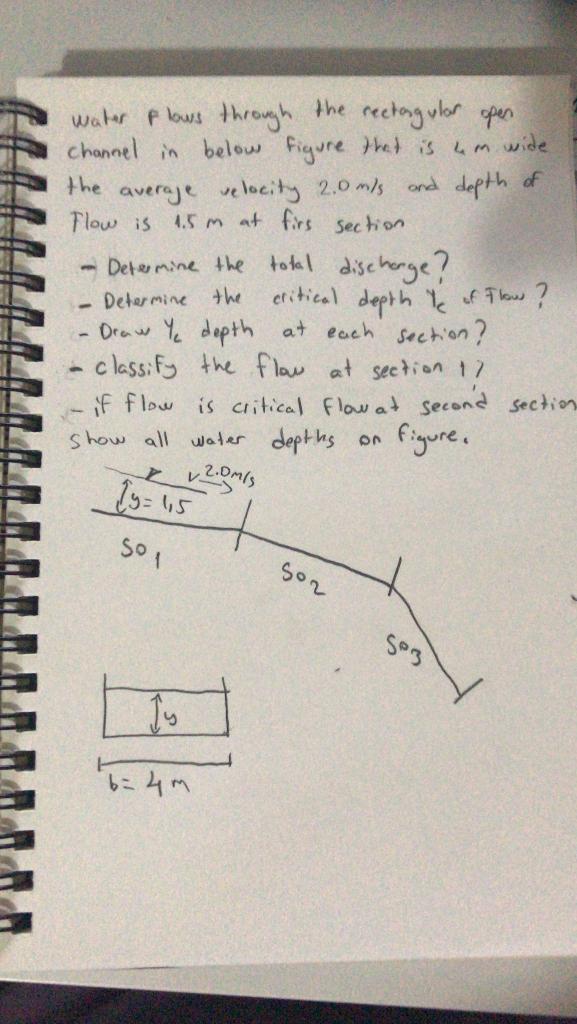 water flows through the rectangular open
channel in below figure that is 4 m wide
the average velocity 2.0 m/s and depth of
Flow is 1.5 m at firs section
- Determine the total discharge?
- Determine the critical depth Yc of Flow?
- Draw Yc depth at each section?
- classify the flow at section 1?
- if flow is critical flow at second section
show all water depths on figure.
v 2.0m/s
y= 1,5
So1
So2
So3
y
b= 4 m